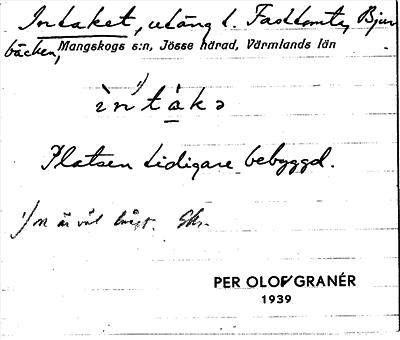 Intaket, utäng t. Fastlomte, Bjur
bäcken, Mangskogs s:n, Jösse härad, Värmlands län
1)
ì n' t à k ə
Platsen tidigare bebyggd.
1) n är väl långt.
PER OLOF GRANÉR
1939